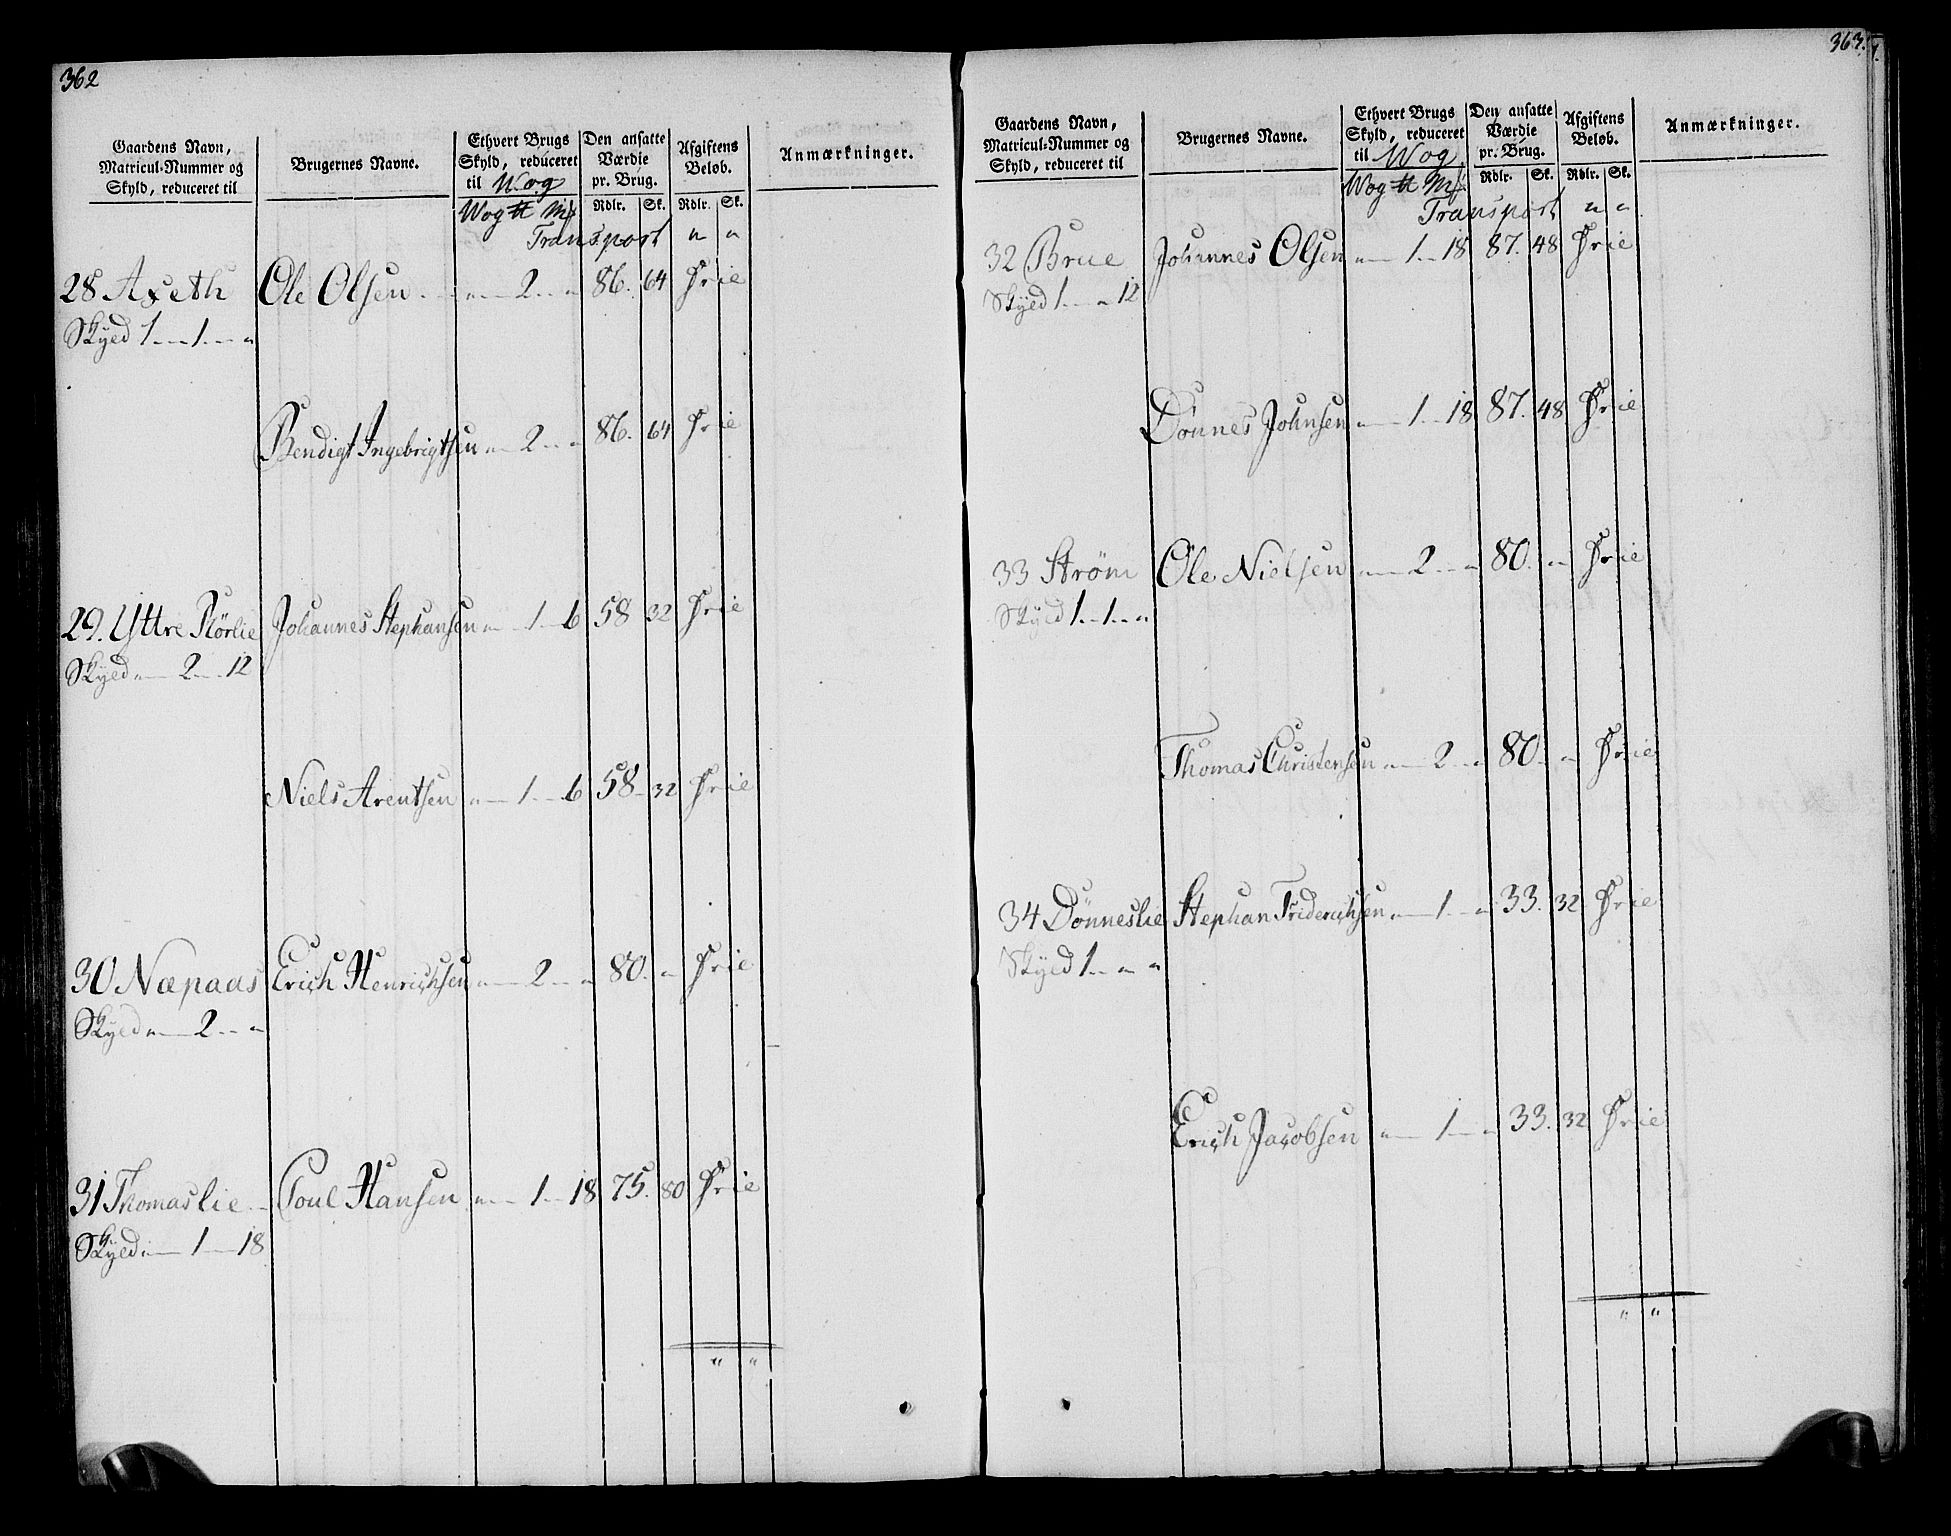 362
Gaardens Navn,
Matricul-Nummer og
Skyld, reduceret til
Brugernes Navne.
Ethvert Brugs
Skyld, reduceret
til Wog
Wog ℔ Mk
Den ansatte
Værdie
pr. Brug.
Rdlr. Sk.
Afgiftens
Beløb.
Rdlr. Sk.
Anmærkninger.
Transport " "
28 Axeth Ole Olsen " 2 " 86. 64 Frie
Skyld 1 1 "
Bendigt Ingebrigtsen " 2 " 86. 64 Frie
29. Yttre Kørlie Johannes Stephansen " 1 6 58 32 Frie
Skyld " 2 12
Niels Arentsen " 1 6 58 32 Frie
30 Næpaas Erich Henrichsen " 2 " 80. " Frie
Skyld " 2 "
31 Thomaslie Poul Hansen " 1 18 75. 80 Frie
Skyld " 1 18
" "
363.
Gaardens Navn,
Matricul-Nummer og
Skyld, reduceret til
Brugernes Navne.
Ethvert Brugs
Skyld, reduceret
til Wog
Wog ℔ Mk
Den ansatte
Værdie
pr. Brug.
Rdlr. Sk.
Afgiftens
Beløb.
Rdlr. Sk.
Anmærkninger.
Transport " "
32 Brue Johannes Olsen " 1 18 87. 48 Frie
Skyld 1 " 12
Dønnes Johnsen " 1 18 87. 48 Frie
33 Strøm Ole Nielsen " 2 " 80. " Frie
Skyld 1 1 "
Thomas Christensen " 2 " 80. " Frie
34 Dønneslie Stephan Friderichsen " 1 " 33. 32 Frie
Skyld 1 " "
Erich Jacobsen " 1 " 33. 32 Frie
" "